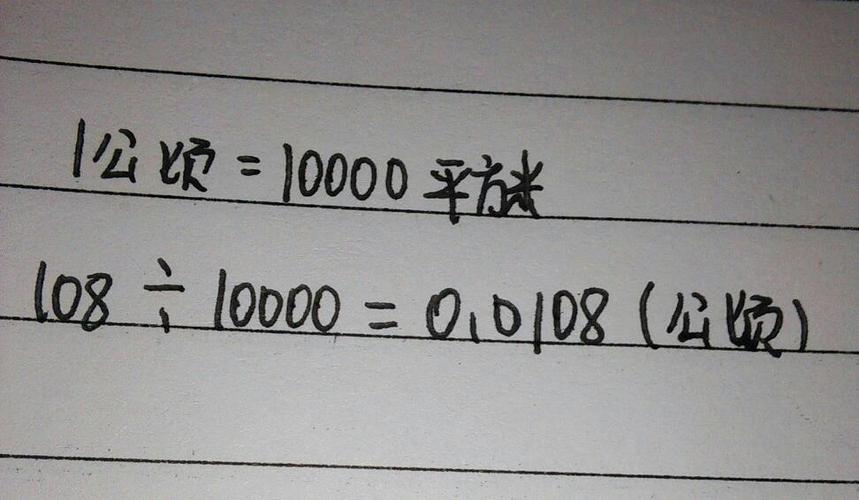 1公顷=10000平方米
108÷10000=0.0108(公顷)